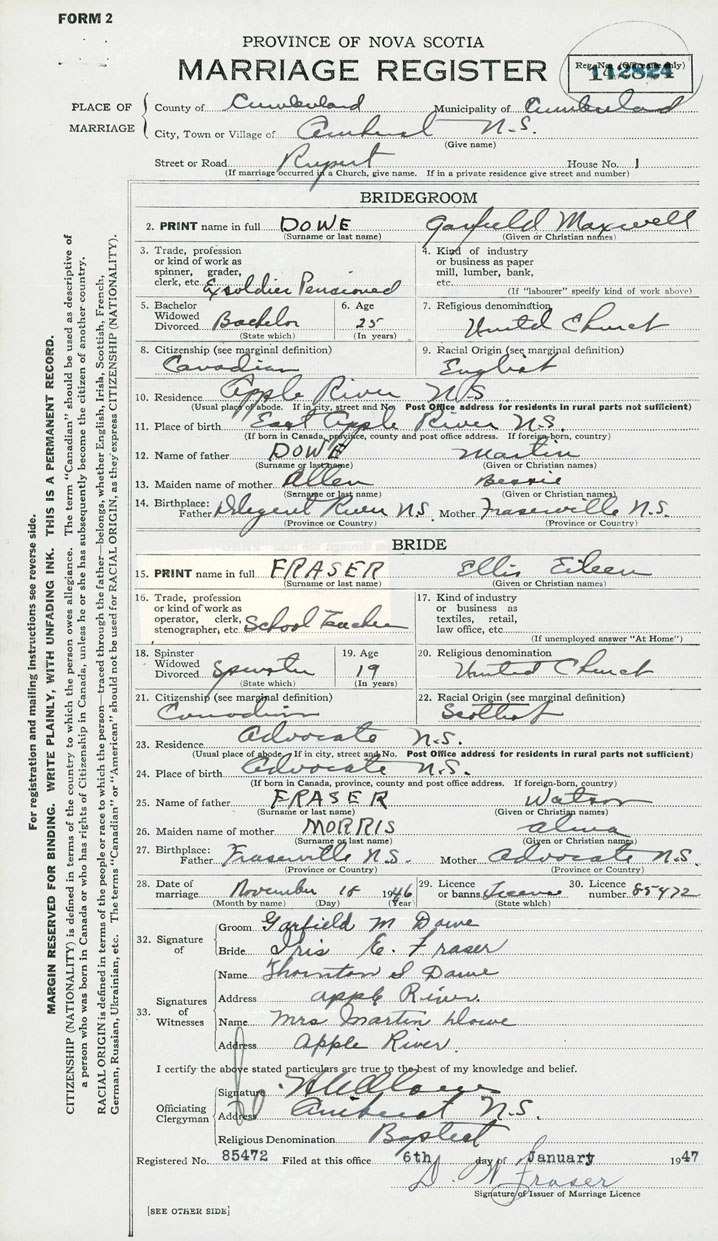 FORM 2
PROVINCE OF NOVA SCOTIA
MARRIAGE REGISTER
Reg. No. (Office use only)
142824
PLACE OF MARRIAGE
County of Cumberland Municipality of Cumberland
City, Town or Village of Amherst N.S.
(Give name)
Street or Road Rupert House No. 1
(If marriage occurred in a Church, give name. If in a private residence give street and number)
BRIDEGROOM
2. PRINT name in full DOWE Garfield Maxwell
(Surname or last name) (Given or Christian names)
3. Trade, profession or kind of work as spinner, grader, clerk, etc. Exsoldier Pensioned
4. Kind of industry or business as paper mill, lumber, bank, etc.
(If "labourer" specify kind of work above)
5. Bachelor Widowed Divorced Bachelor
(State which)
6. Age 25
(In years)
7. Religious denomination
United Church
8. Citizenship (see marginal definition)
Canadian
9. Racial Origin (see marginal definition)
English
10. Residence Apple River N.S.
(Usual place of abode. If in city, street and No. Post Office address for residents in rural parts not sufficient)
11. Place of birth East Apple River N.S.
(If born in Canada, province, county and post office address. If foreign-born, country)
12. Name of father DOWE Martin
(Surname or last name) (Given or Christian names)
13. Maiden name of mother Allen Bessie
(Surname or last name) (Given or Christian names)
14. Birthplace: Father Diligent River N.S. Mother Fraserville N.S.
(Province or Country) (Province or Country)
BRIDE
15. PRINT name in full FRASER Ellis Eileen
(Surname or last name) (Given or Christian names)
16. Trade, profession or kind of work as operator, clerk, stenographer, etc. School Teacher
17. Kind of industry or business as textiles, retail, law office, etc.
(If unemployed answer "At Home")
18. Spinster Widowed Divorced Spinster
(State which)
19. Age 19
(In years)
20. Religious denomination
United Church
21. Citizenship (see marginal definition)
Canadian
22. Racial Origin (see marginal definition)
Scottish
23. Residence Advocate N.S.
(Usual place of abode. If in city, street and No. Post Office address for residents in rural parts not sufficient)
24. Place of birth Advocate N.S.
(If born in Canada, province, county and post office address. If foreign-born, country)
25. Name of father FRASER Watson
(Surname or last name) (Given or Christian names)
26. Maiden name of mother MORRIS Alma
(Surname or last name) (Given or Christian names)
27. Birthplace: Father Fraserville N.S. Mother Advocate N.S.
(Province or Country) (Province or Country)
28. Date of marriage November 18 1946
(Month by name) (Day) (Year)
29. Licence or banns License
(State which)
30. Licence number 85472
32. Signature of
Groom Garfield M Dowe
Bride Iris E. Fraser
33. Signatures of Witnesses
Name Thornton S Dowe
Address Apple River.
Name Mrs Martin Dowe
Address Apple River.
I certify the above stated particulars are true to the best of my knowledge and belief.
Officiating Clergyman
Signature
Address Amherst N.S.
Religious Denomination Baptist
Registered No. 85472 Filed at this office 6th day of January 1947
D. W Fraser
Signature of Issuer of Marriage Licence
[SEE OTHER SIDE]
For registration and mailing instructions see reverse side.
MARGIN RESERVED FOR BINDING. WRITE PLAINLY, WITH UNFADING INK. THIS IS A PERMANENT RECORD.
CITIZENSHIP (NATIONALITY) is defined in terms of the country to which the person owes allegiance. The term "Canadian" should be used as descriptive of
a person who was born in Canada or who has rights of Citizenship in Canada, unless he or she has subsequently become the citizen of another country.
RACIAL ORIGIN is defined in terms of the people or race to which the person—traced through the father—belongs, whether English, Irish, Scottish, French,
German, Russian, Ukrainian, etc. The terms "Canadian" or "American" should not be used for RACIAL ORIGIN, as they express CITIZENSHIP (NATIONALITY).